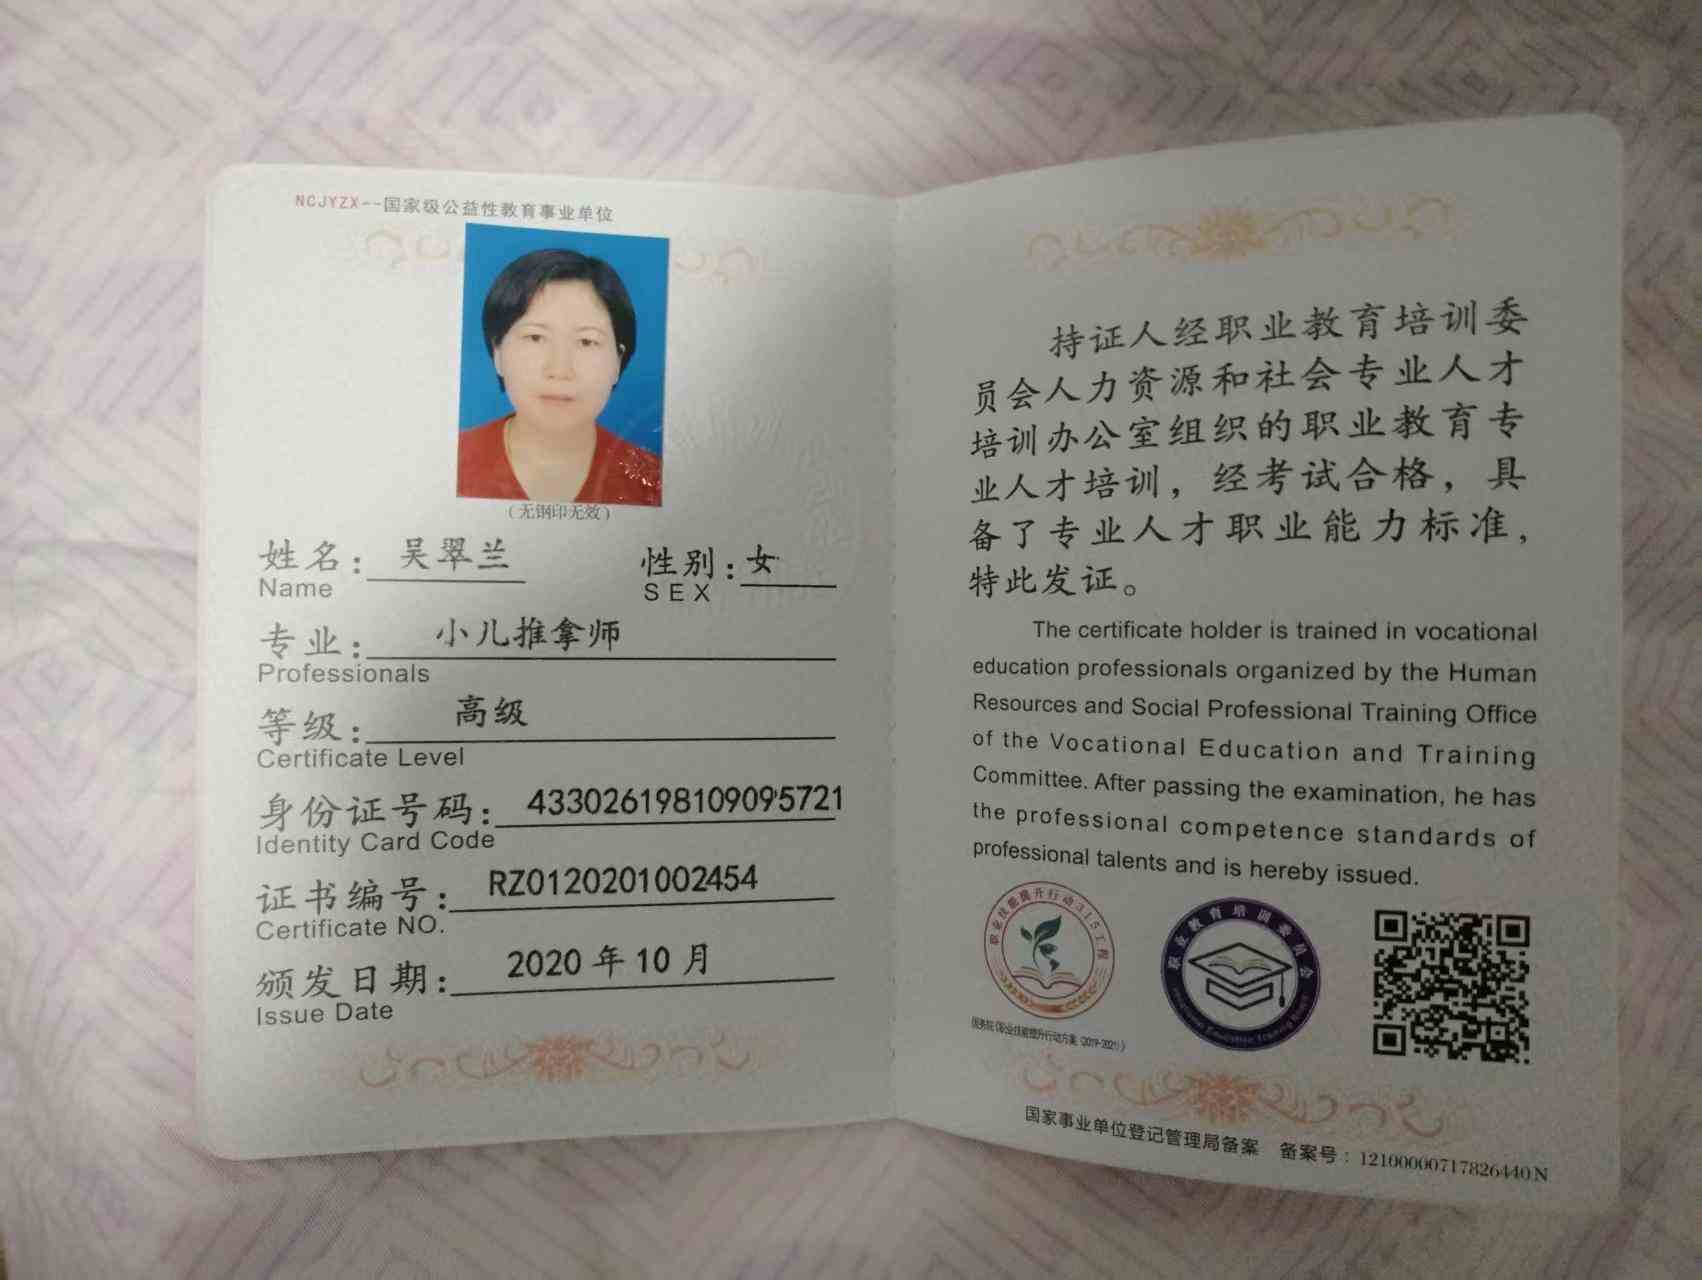 NCJYZX--国家级公益性教育事业单位
(无钢印无效)
姓名: 吴翠兰 性别: 女
Name SEX
专业: 小儿推拿师
Professionals
等级: 高级
Certificate Level
身份证号码: 433026198109095721
Identity Card Code
证书编号: RZ0120201002454
Certificate NO.
颁发日期: 2020 年 10 月
Issue Date
持证人经职业教育培训委
员会人力资源和社会专业人才
培训办公室组织的职业教育专
业人才培训，经考试合格，具
备了专业人才职业能力标准，
特此发证。
The certificate holder is trained in vocational
education professionals organized by the Human
Resources and Social Professional Training Office
of the Vocational Education and Training
Committee. After passing the examination, he has
the professional competence standards of
professional talents and is hereby issued.
职业技能提升行动315工程
国务院《职业技能提升行动方案（2019-2021）》
职业教育培训委员会
国家事业单位登记管理局备案 备案号：12100000717826440N